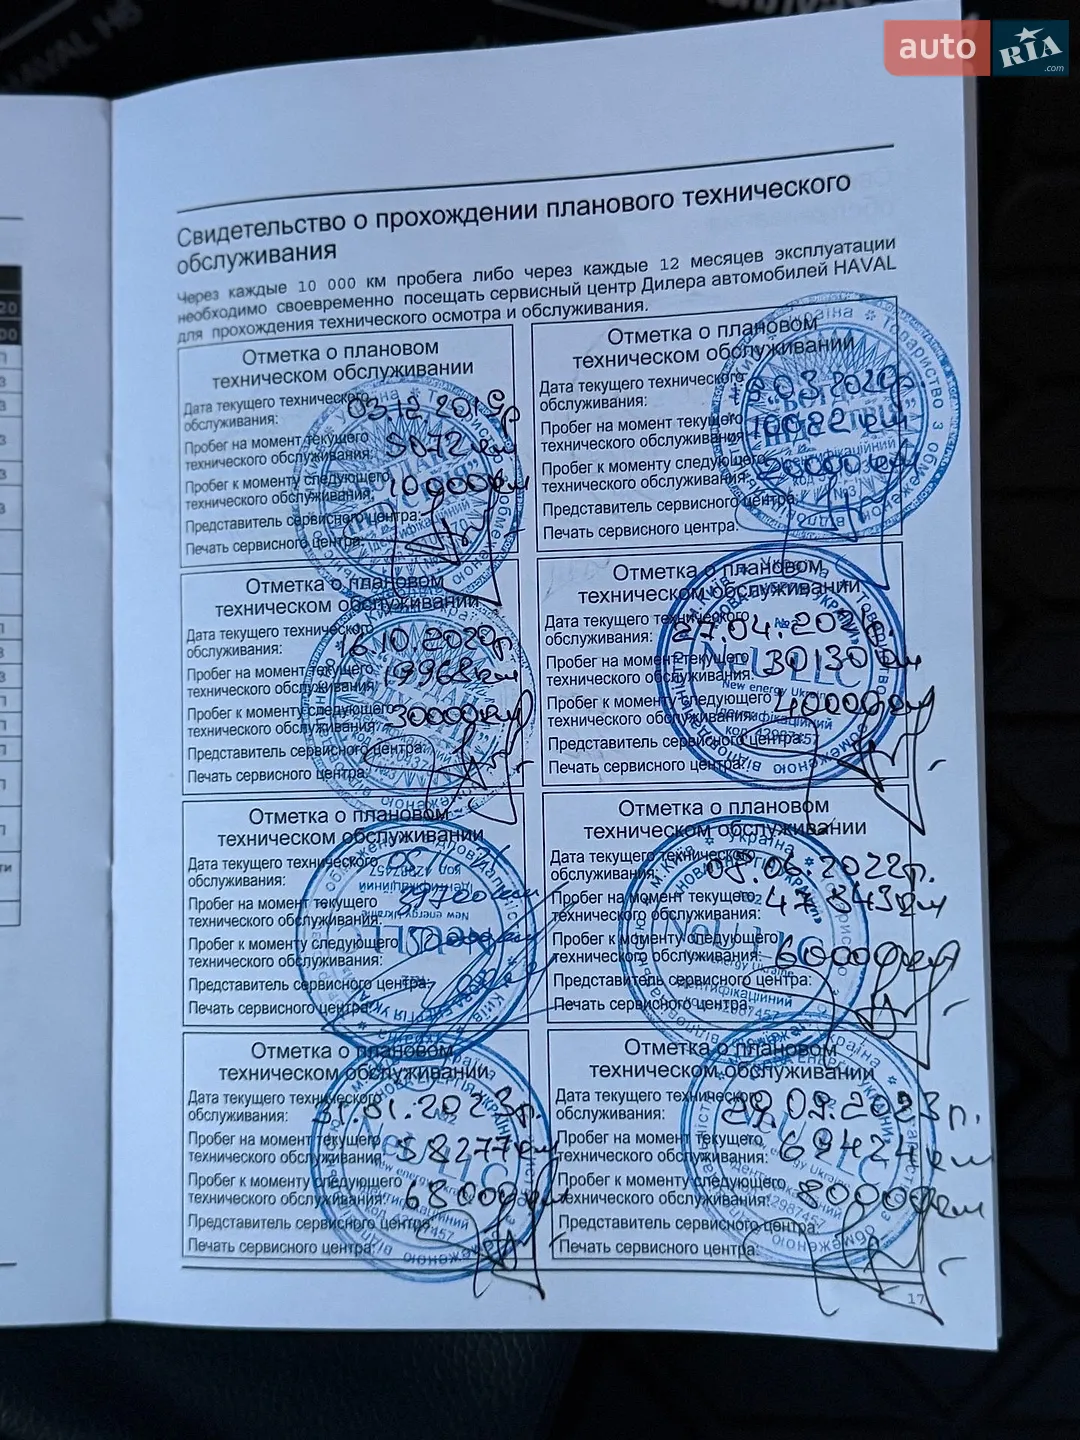 auto RIA.com
Свидетельство о прохождении планового технического
обслуживания
Через каждые 10 000 км пробега либо через каждые 12 месяцев эксплуатации
необходимо своевременно посещать сервисный центр Дилера автомобилей HAVAL
для прохождения технического осмотра и обслуживания.
Отметка о плановом
техническом обслуживании
Дата текущего технического
обслуживания: 03.12.2019р
Пробег на момент текущего
технического обслуживания: 5072 км
Пробег к моменту следующего
технического обслуживания: 10000 км
Представитель сервисного центра:
Печать сервисного центра:
Отметка о плановом
техническом обслуживании
Дата текущего технического
обслуживания: 03.2020р.
Пробег на момент текущего
технического обслуживания:
Пробег к моменту следующего
технического обслуживания: 20000 км
Представитель сервисного центра:
Печать сервисного центра:
Отметка о плановом
техническом обслуживании
Дата текущего технического
обслуживания: 16.10.2020р
Пробег на момент текущего
технического обслуживания: 19968 км
Пробег к моменту следующего
технического обслуживания: 30000 км
Представитель сервисного центра:
Печать сервисного центра:
Отметка о плановом
техническом обслуживании
Дата текущего технического
обслуживания: 27.04.
Пробег на момент текущего
технического обслуживания: 30130 км
Пробег к моменту следующего
технического обслуживания: 40000 км
Представитель сервисного центра:
Печать сервисного центра:
Отметка о плановом
техническом обслуживании
Дата текущего технического
обслуживания:
Пробег на момент текущего
технического обслуживания: 39700
Пробег к моменту следующего
технического обслуживания:
Представитель сервисного центра:
Печать сервисного центра:
Отметка о плановом
техническом обслуживании
Дата текущего технического
обслуживания: 06.2022р.
Пробег на момент текущего
технического обслуживания: 47843 км
Пробег к моменту следующего
технического обслуживания: 60000 км
Представитель сервисного центра:
Печать сервисного центра:
Отметка о плановом
техническом обслуживании
Дата текущего технического
обслуживания: 31.01.2023р.
Пробег на момент текущего
технического обслуживания: 58277 км
Пробег к моменту следующего
технического обслуживания: 68000 км
Представитель сервисного центра:
Печать сервисного центра:
Отметка о плановом
техническом обслуживании
Дата текущего технического
обслуживания: 09.2023р.
Пробег на момент текущего
технического обслуживания: 69424 км
Пробег к моменту следующего
технического обслуживания: 80000 км
Представитель сервисного центра:
Печать сервисного центра:
17